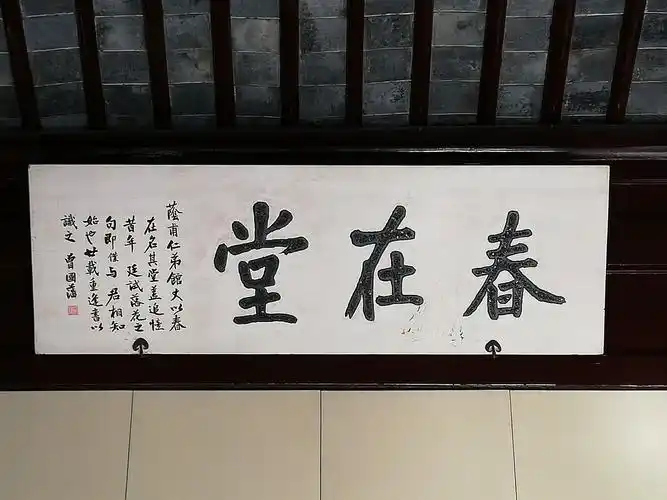 春在堂
蔭甫仁弟館丈以春
在名其堂蓋追憶
昔年 廷試落花之
句即僕與 君相知
始也廿載重逢書以
識之 曾國藩